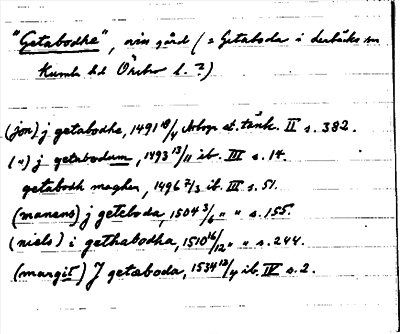 "Getabodhe", viss gård (= Getaboda i Lerbäcks sn
Kumla hd Örebro l. ?)
(jon) j getabodhe, 1491 18/4 Arboga st. tänk. II s. 382.
(") j getabodum, 1493 13/11 ib. III s. 14.
getabodh maghen, 1496 7/3 ib. III s. 51.
(monens) j geteboda, 1504 3/6 " " s. 155.
(niels) i gethabodha, 1510 16/12 " " s. 244.
(margit) J getæboda, 1534 13/4 ib. IV s. 2.